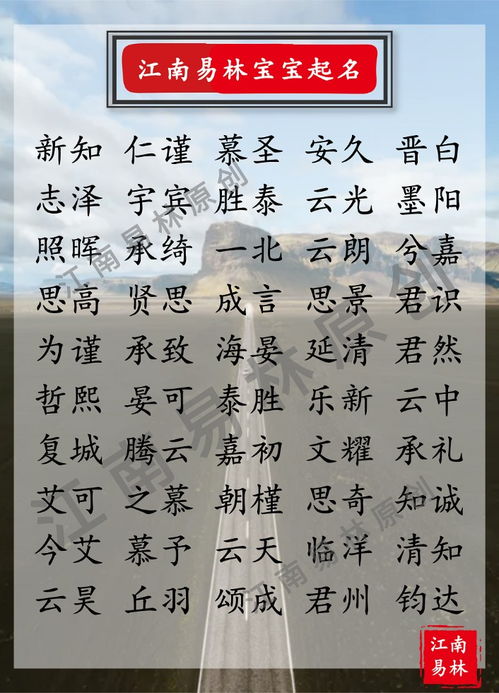 江南易林宝宝起名
新知 仁谨 慕圣 安久 晋白
志泽 宇宾 胜泰 云光 墨阳
照晖 承绮 一北 云朗 兮嘉
思高 贤思 成言 思景 君识
为谨 承致 海晏 延清 君然
哲熙 晏可 泰胜 乐新 云中
复城 腾云 嘉初 文耀 承礼
艾可 之慕 朝槿 思奇 知诚
今艾 慕予 云天 临洋 清知
云昊 丘羽 颂成 君州 钧达
江南易林原创
江南易林原创
江南易林原创
江南
易林